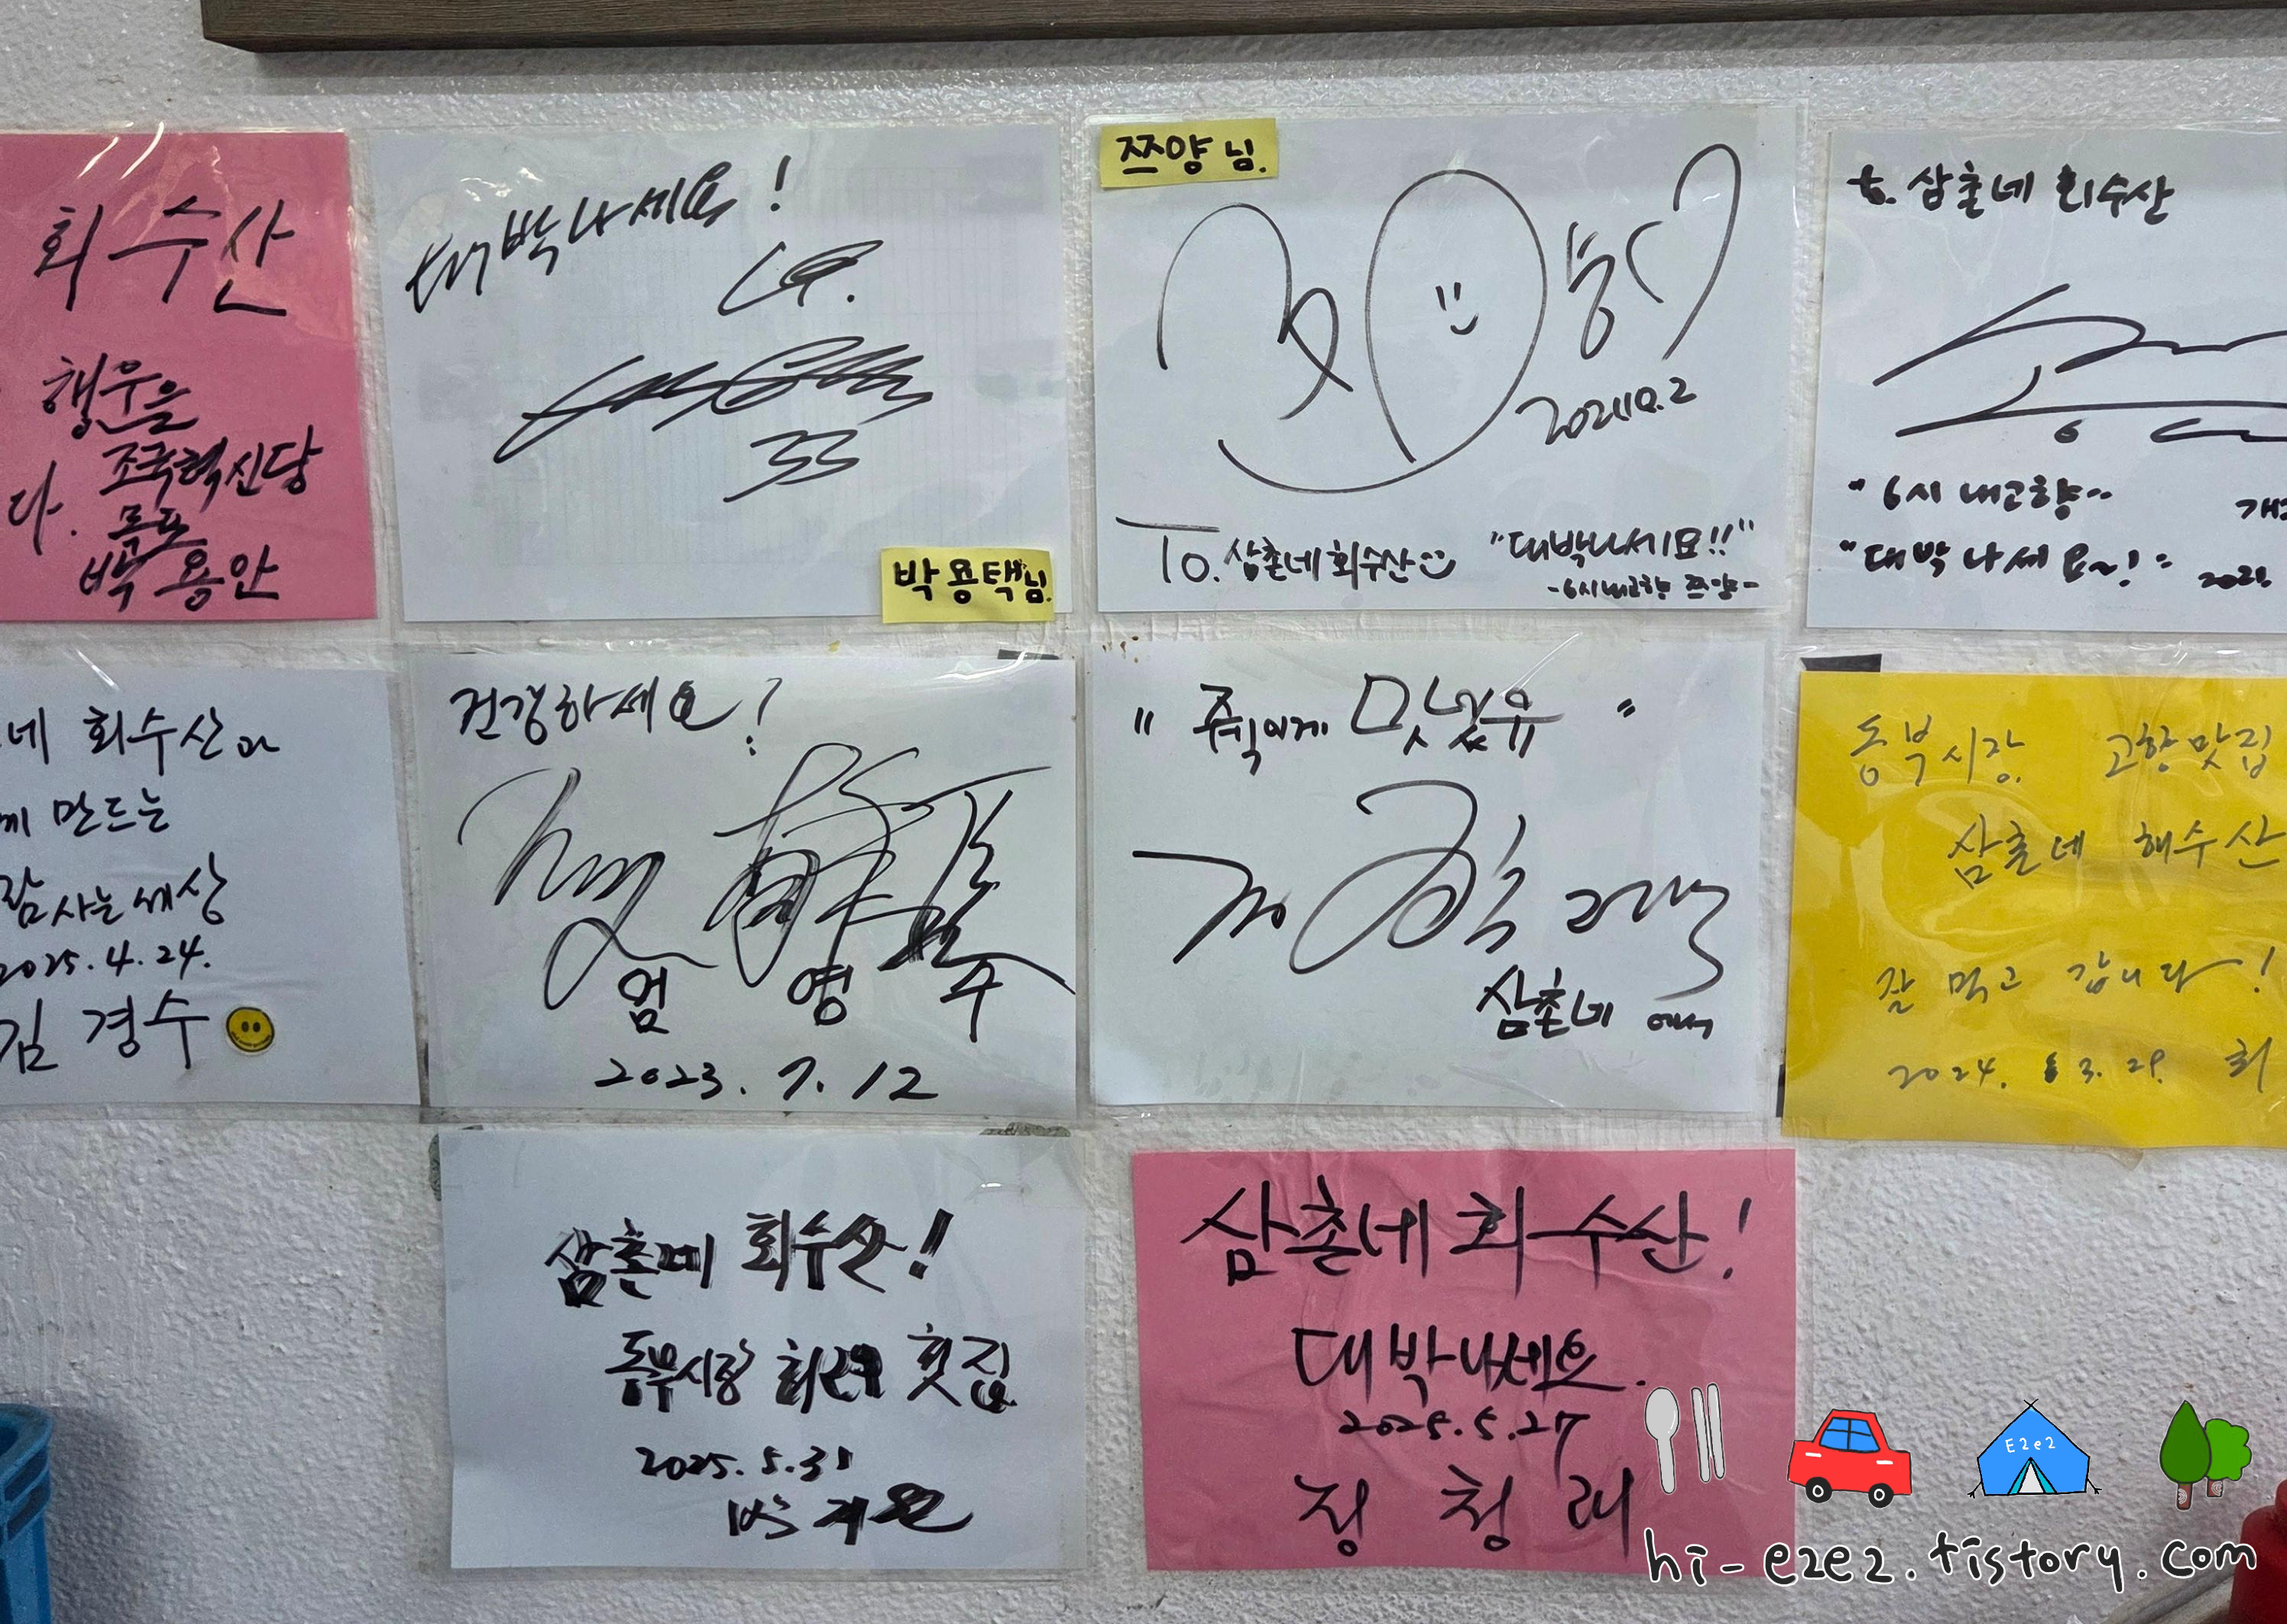 회수산
행운을
다.
조국혁신당
목포
박용안
대박나세요!
LG.
33
박용택님.
쯔양님.
2021.10.2
To. 삼촌네 회수산
"대박나세요!!"
-6시내고향 쯔양-
to. 삼촌네 회수산
"6시 내고향"
"대박 나세요~!"
네 회수산과
께 만드는
람 사는 세상
2025.4.24.
김경수
건강하세요!
엄영수
2023.7.12
" 쥑이게 맛있슈 "
삼촌네 에서
동부시장 고향맛집
삼촌네 해수산
잘 먹고 갑니다!
2024. 3. 29. 최
삼촌네 회수산!
동부시장 최고 횟집
2025.5.31
박지원
삼촌네 회수산!
대박나세요.
2025.5.27
정청래
E2e2
hi-e2e2.tistory.com